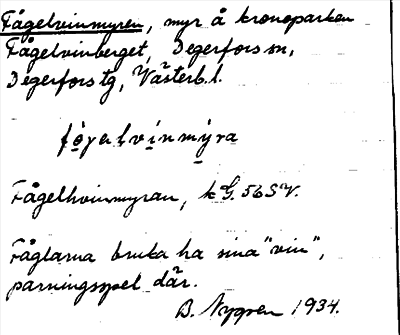 Fågelvinmyren, myr å kronoparken
Fågelvinberget, Degerfors sn,
Degerfors tg, Västerb. l.
fögəlvinmýra
Fågelhvinmyran, k G. 56 SV.
Fåglarna bruka ha sina "vin",
parningsspel där.
B. Nygren 1934.